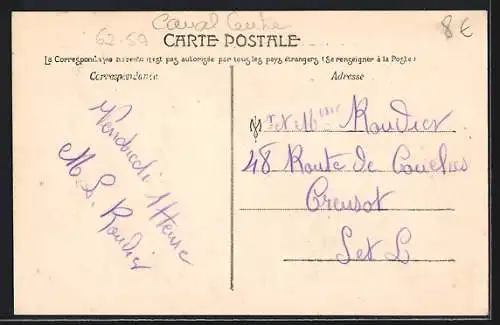 62-59 Canal Centre
8€
CARTE POSTALE
La Correspondance au recto n'est pas autorisée par tous les pays étrangers (Se renseigner à la Poste)
Correspondance
Adresse
Vendredi 1 Heure
M. L. Roudier
Mr et Mme Roudier
48 Route de Couches
Creusot
S et L